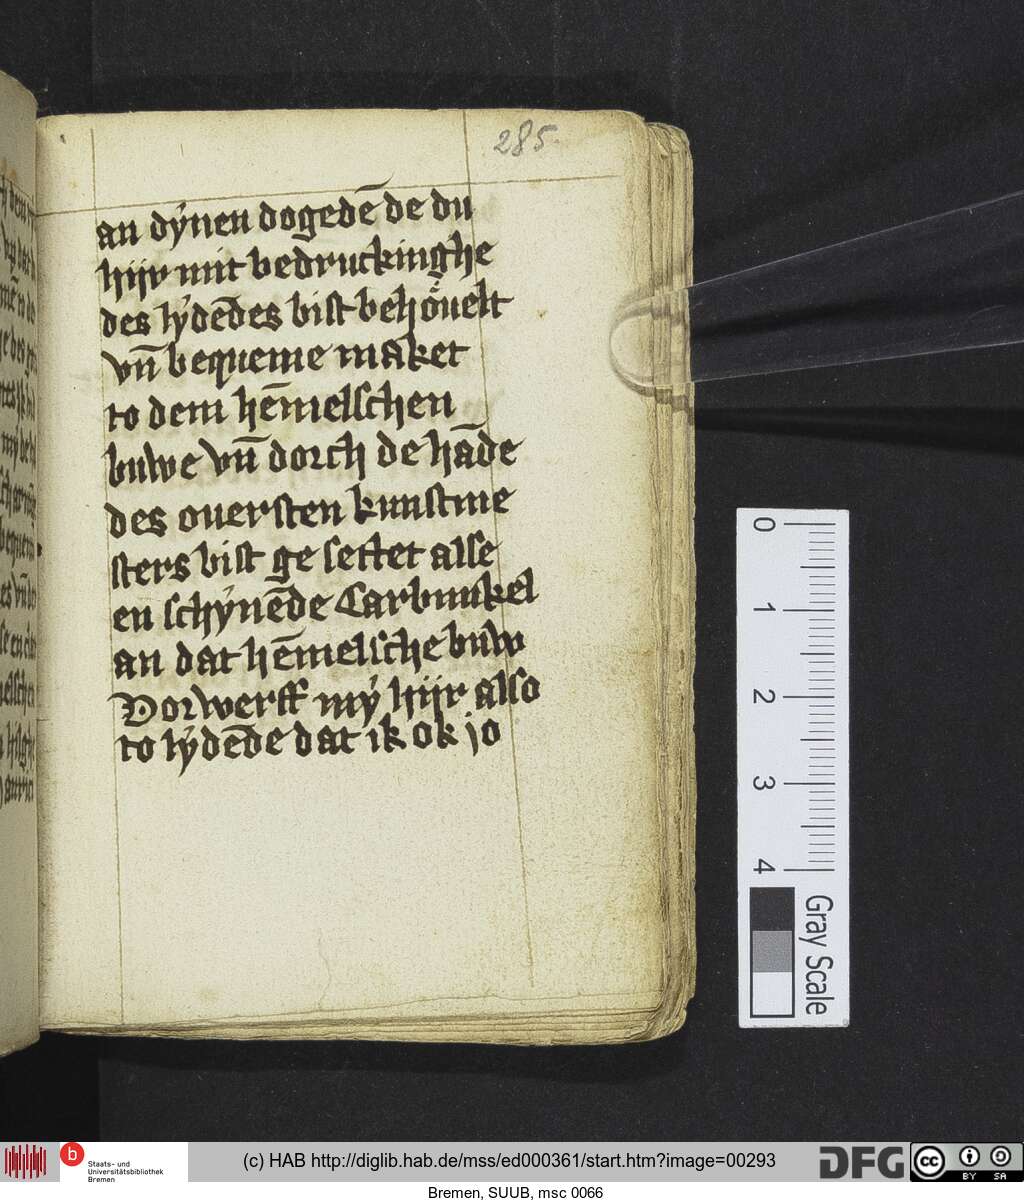 285
an dẏnen dogedē de du
hijr mit bedruckinghe
des lẏdēdes bist behöuelt
vn̄ bequeme maket
to dem hēmelschen
buwe vn̄ dorch de hāde
des ouersten kunstme
sters bist ge settet alse
en schẏnēde Carbunkel
an dat hēmelsche buw
Dorwerff mẏ hijr also
to lẏdēde dat ik ok jo
0
1
2
3
4
Gray Scale
b
Staats- und
Universitätsbibliothek
Bremen
(c) HAB http://diglib.hab.de/mss/ed000361/start.htm?image=00293
DFG
cc
BY SA
Bremen, SUUB, msc 0066